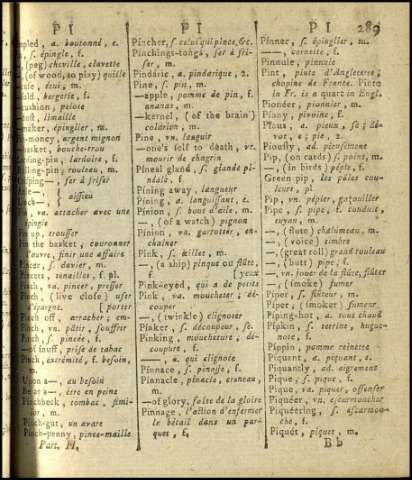 P I
P I
P I
289
a. boutonné, e.
s. épingle, f.
(peg) cheville, clavette
(of wood, to play) quille
étui, m.
bergerie, f.
cushion, pelote
dust, limaille
maker, épinglier, m.
money, argent mignon
basket, bouche-trou
lardoire, f.
rouleau, m.
fer à friser
aiffieu
va. attacher avec une
épingle
up, trousser
the basket, couronner
l'œuvre, finir une affaire
s. davier, m.
tenailles, f. pl.
va. pincer, presser
(live close) user
d'épargne. [porter
off, arracher, em-
vn. pâtir, souffrir
s. pincée, f.
of snuff, prise de tabac
extrémité, f. besoin,
m.
Upon a—, au besoin
Be at a—, être en peine
Pinchbeck, tombac, simi-
lor, m.
Pinch-gut, un avare
Pinch-penny, pince-maille
Part. II.
Pincher, s. celui qui pince, &c.
Pinching-tongs, fer à fri-
ser, m.
Pindaric, a. pindarique, 2.
Pine, s. pin, m.
—apple, pomme de pin, f.
ananas, m.
—kernel, (of the brain)
m.
Pine, vn. languir
—one's self to death, vr.
mourir de chagrin
Pineal gland, s. glande pi-
néale, f.
Pining away, langueur
Pining, a. languissant, e.
Pinion, s. bout d'aile, m.
—, (of a watch) pignon
Pinion, va. garrotter, en-
chaîner
Pink, s. œillet, m.
—, (a ship) pinque ou flûte,
f. [yeux
Pink-eyed, qui a de petits
Pink, va. moucheter; dé-
couper
—, (twinkle) clignoter
Pinker, s. découpeur, se.
Pinking, moucheture; dé-
coupure, f.
—, a. qui clignote
Pinnace, s. pinasse, f.
Pinnacle, pinacle, creneau,
m.
—of glory, faîte de la gloire
Pinnage, l'action d'enfermer
le bétail dans un par-
quet, f.
Pinner, s. épinglier, m.
—, cornette, f.
Pinnule, pinnule
Pint, pinte d'Angleterre;
chopine de France. Pinte
in Fr. is a quart in Engl.
Pioneer, pionnier, m.
Piony, pivoine, f.
Pious, a. pieux, se; dé-
vot, e; pie, 2.
Piously, ad. pieusement
Pip, (on cards) s. point, m.
—, (in birds) pépie, f.
Green pip, les pâles cou-
leurs, pl.
Pip, vn. pépier, gazouiller
Pipe, s. pipe, f. conduit,
tuyau, m.
—, (flute) chalumeau, m.
—, (voice) timbre
—, (great roll) grand rouleau
—, (butt) pipe, f.
—, vn. jouer de la flûte, flûter
—, (smoke) fumer
Piper, s. flûteur, m.
Piper, (smoker) fumeur
Piping-hot, a. tout chaud
Pipkin, s. terrine, hugue-
note, f.
Pippin, pomme reinette
Piquant, a. piquant, e.
Piquantly, ad. aigrement
Pique, s. pique, f.
Pique, va. piquer, offenser
Piqueer, vn. escarmoucher
Piqueering, s. escarmou-
che, f.
Piquet, piquet, m.
B b